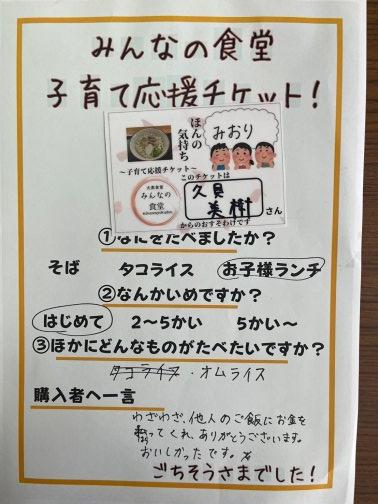 みんなの食堂
子育て応援チケット!
ほんの
気持ち
みおり
～子育て応援チケット～
このチケットは
大衆食堂
みんなの
食堂
久貝
美樹
さん
からのおすそわけです
①なにをたべましたか?
そば タコライス お子様ランチ
②なんかいめですか?
はじめて 2～5かい 5かい～
③ほかにどんなものがたべたいですか?
タコライス・オムライス
購入者へ一言
わざわざ、他人のご飯にお金を
払ってくれ、ありがとうございます。
おいしかったです。
ごちそうさまでした!